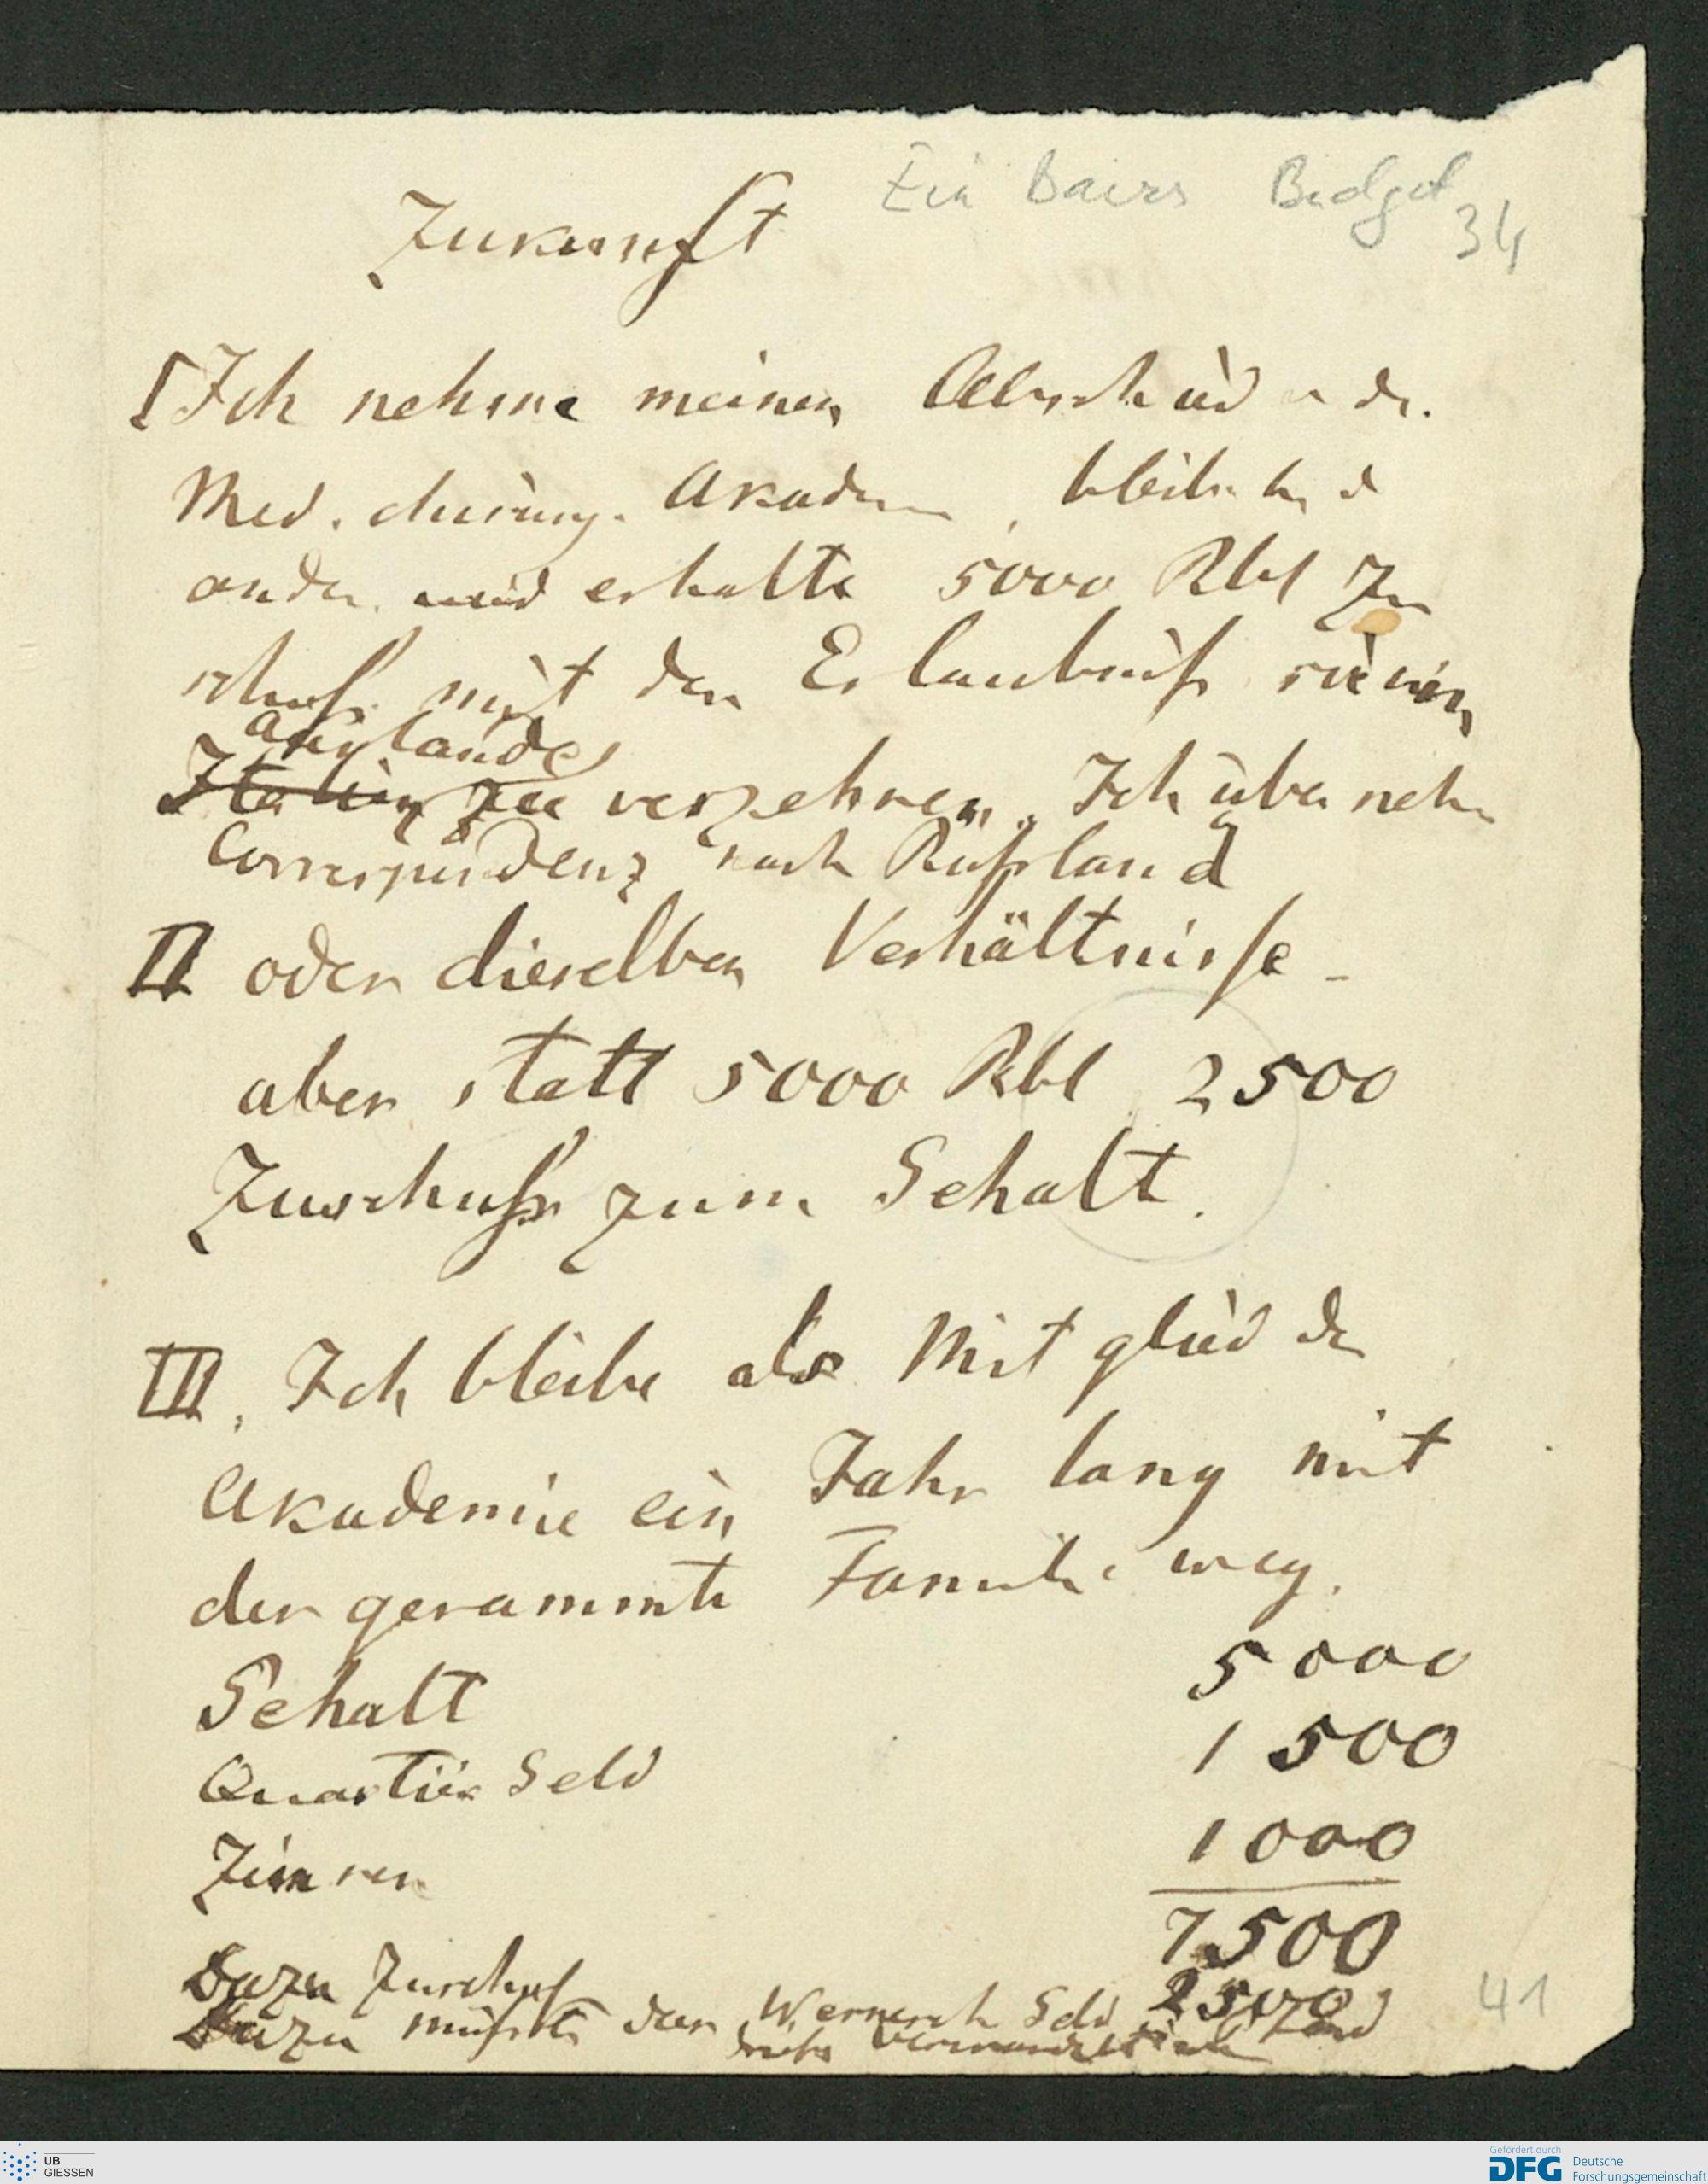 Ein Baers Budget
34
Zukunft
I Ich nehme meinen Abschied a d.
Med. chirurg. Akadem , bleibe bey d
ander. und erhalte 5000 Rbl Zu
schuß mit der Erlaubniß sie im
Auslande
Italien zu verzehren. Ich überneh
Correspondenz nach Rußland
II oder dieselben Verhältnisse -
aber statt 5000 Rbl 2500
Zuschuß zum Gehalt.
III. Ich bleibe als Mitglied der
Akademie ein Jahr lang mit
der gesammte Familie weg.
Gehalt 5000
Quartier Geld 1500
Zinsen 1000
7500
Dazu Zuschuß 2500
Dazu müßte das Wernersch Geld
41
UB
GIESSEN
Gefördert durch
DFG Deutsche
Forschungsgemeinschaft